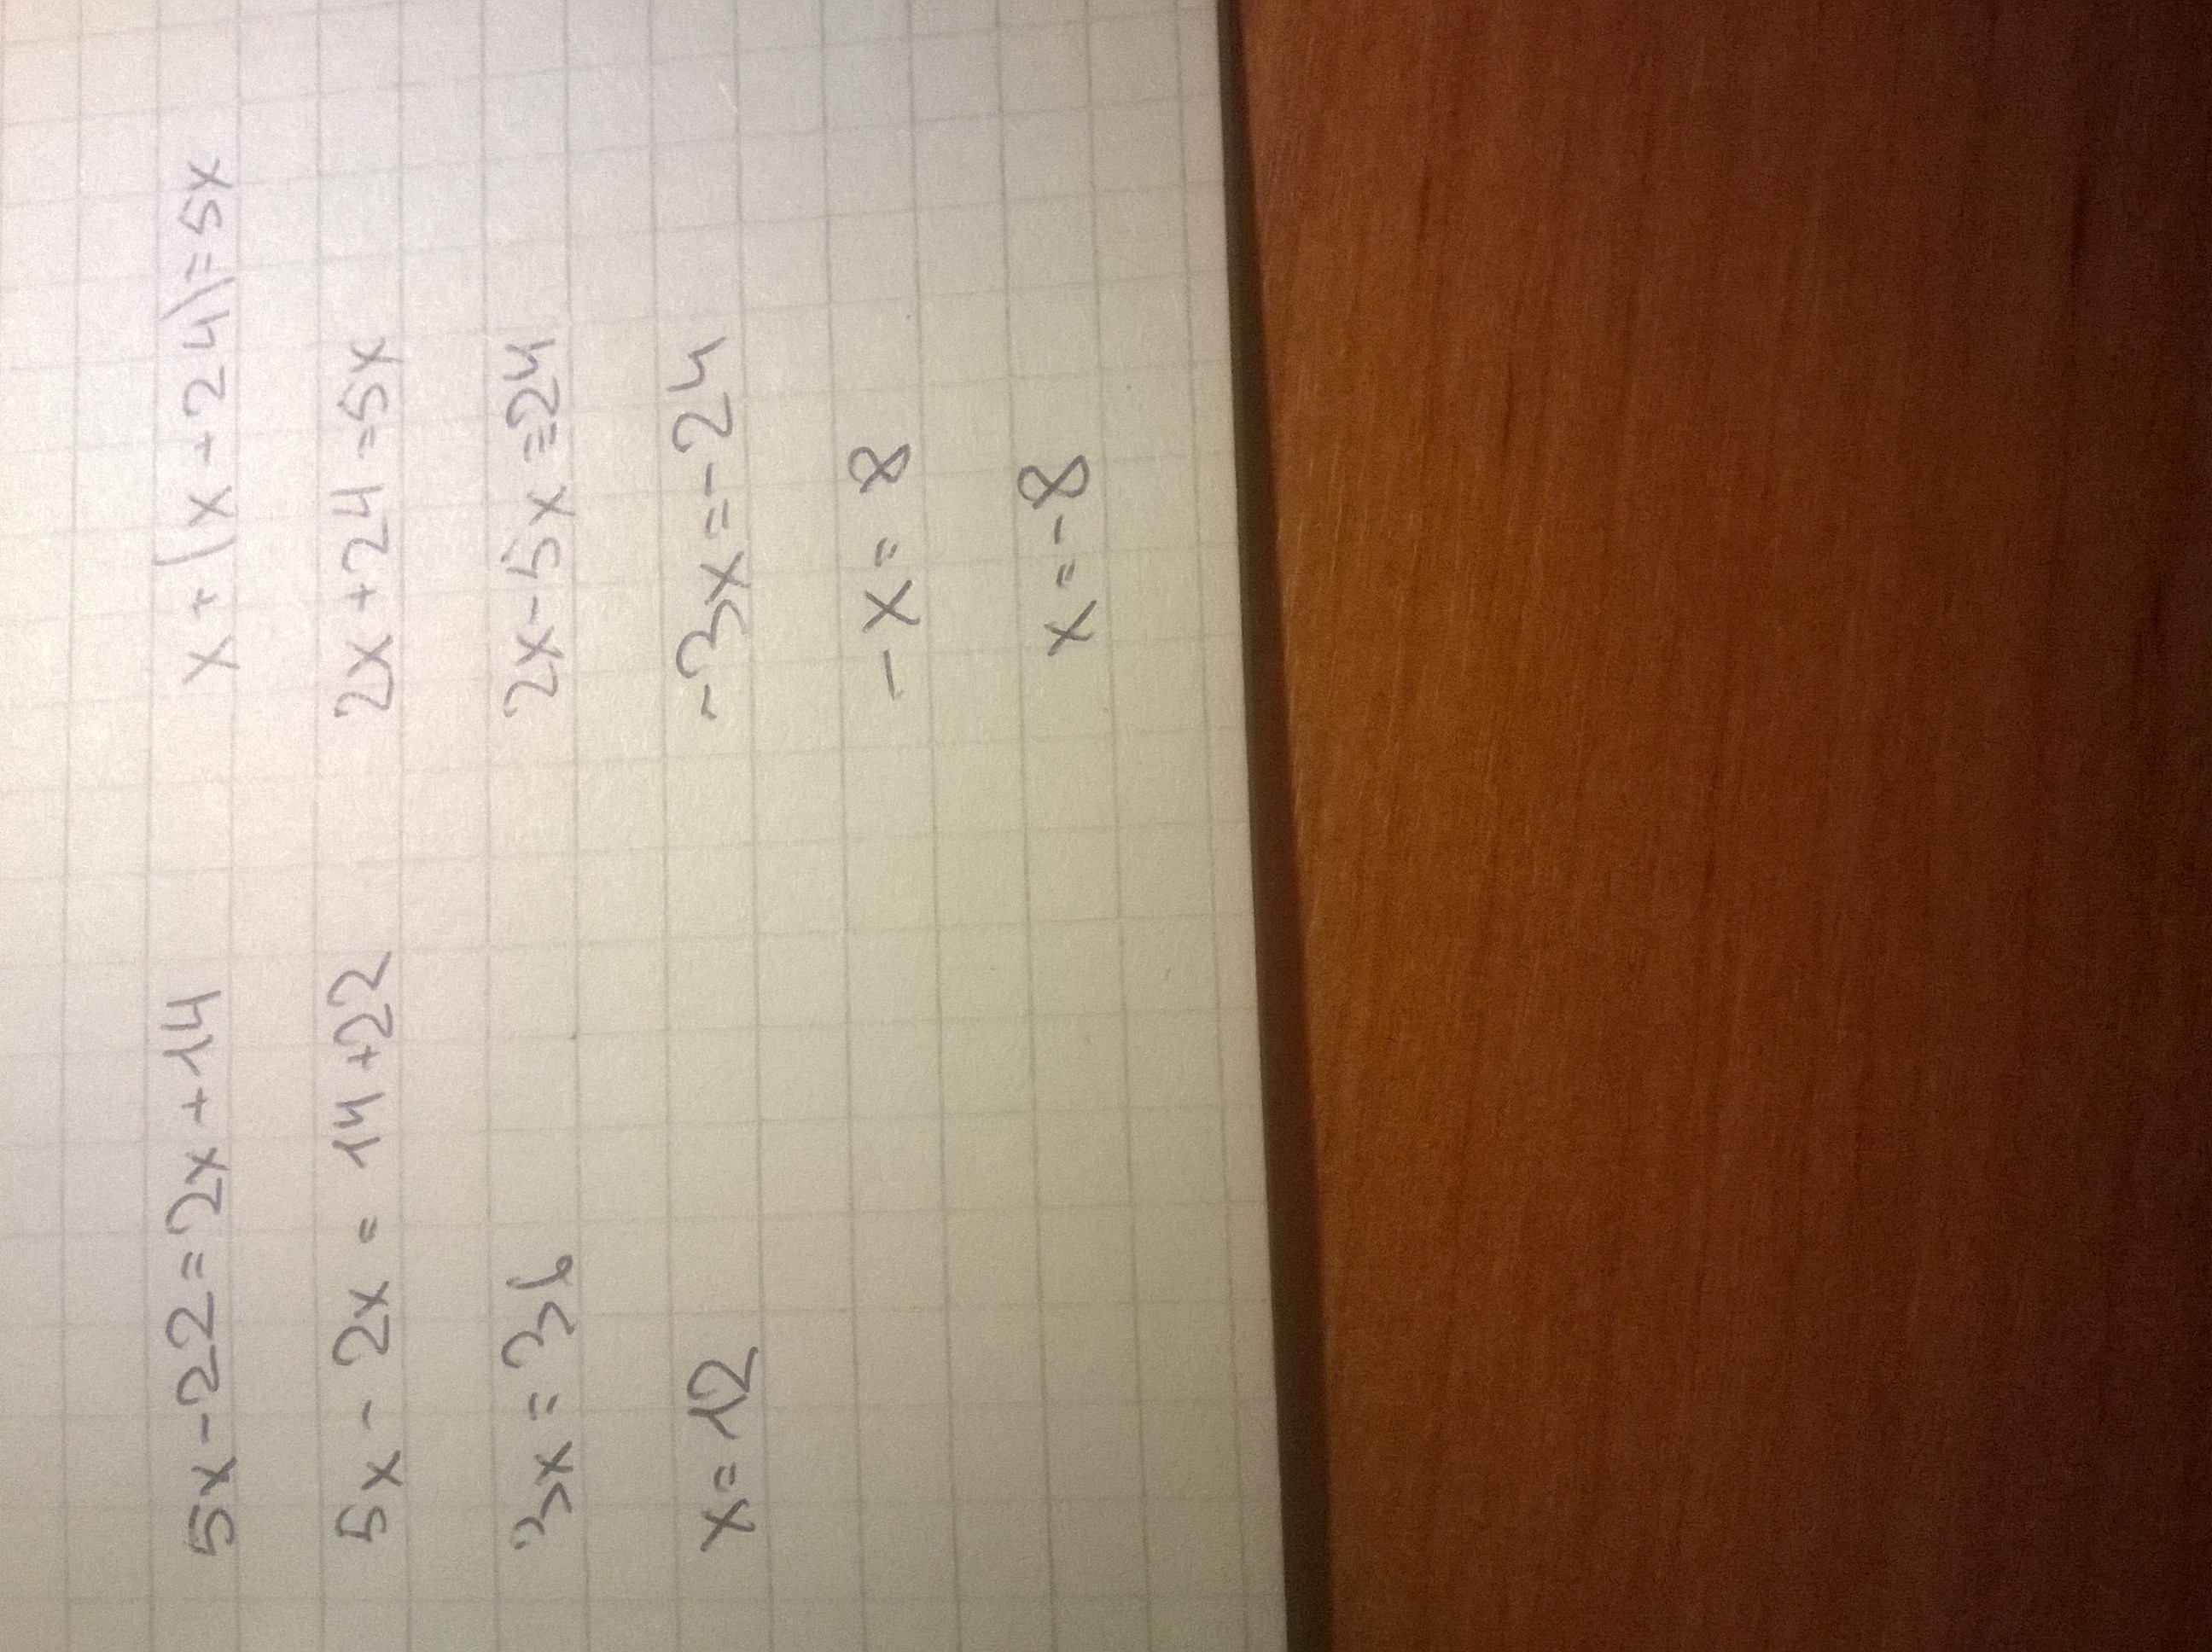 5x-22=2x+14
5x-2x=14+22
3x=36
x=12
x+(x+24)=5x
2x+24=5x
2x-5x=24
-3x=-24
-x=8
x=-8